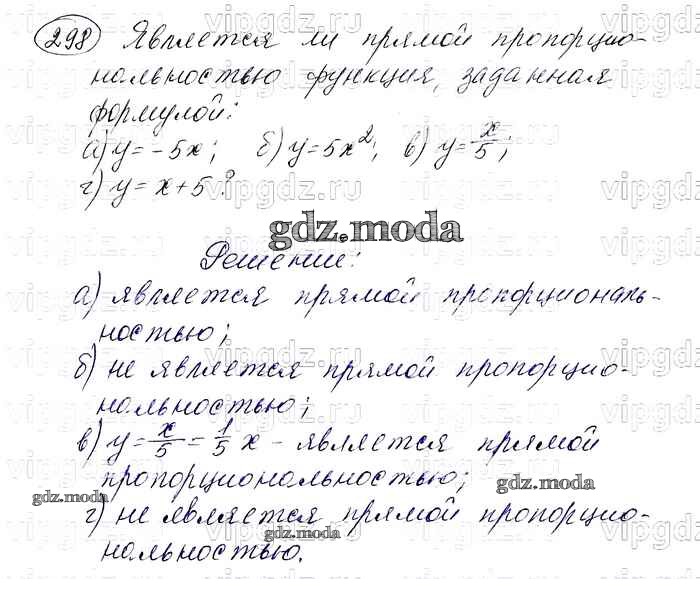 298 Является ли прямой пропорцио-
нальностью функция, заданная
формулой:
а) y = -5x; б) y = 5x²; в) y = x/5;
г) y = x + 5?
gdz.moda
Решение:
а) является прямой пропорциональ-
ностью;
б) не является прямой пропорцио-
нальностью;
в) y = x/5 = 1/5 x - является прямой
пропорциональностью;
gdz.moda gdz.moda
г) не является прямой пропорцио-
gdz.moda
нальностью.
vipgdz.ru